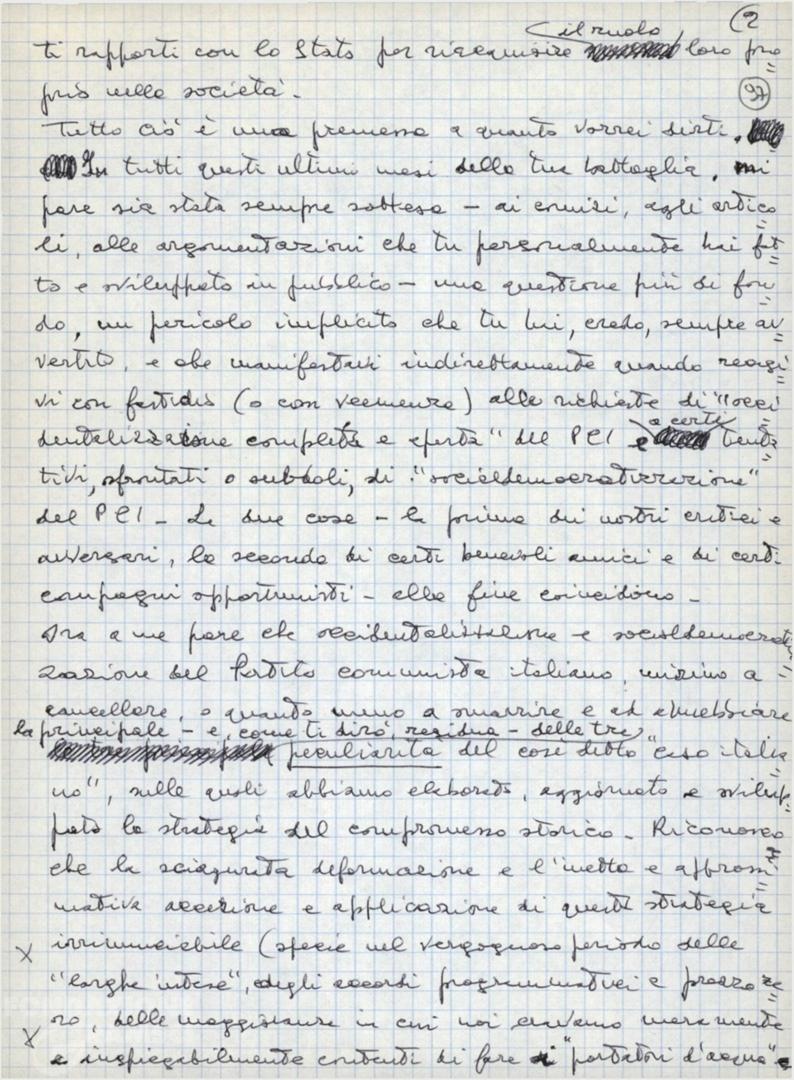 (2
il ruolo
ti rapporti con lo Stato per riacquisire loro pro
prio nella società.
97
Tutto ciò è una premessa a quanto vorrei dirti.
In tutti questi ultimi mesi della tua battaglia, mi
pare sia stata sempre sottesa - ai comizi, agli artico
li, alle argomentazioni che tu personalmente hai fat
to e sviluppato in pubblico - una questione più di fon
do, un pericolo implicito che tu hai, credo, sempre av
vertito, e che manifestavi indirettamente quando reagi
vi con fastidio (o con veemenza) alle richieste di "occi
dentalizzazione completa e aperta" del PCI e
a certi
tenta
tivi, sfrontati o subdoli, di "socialdemocratizzazione"
del PCI - Le due cose - la prima dei nostri critici e
avversari, la seconda di certi benevoli amici e di certi
compagni opportunisti - alla fine coincidono -
Ora a me pare che occidentalizzazione e socialdemocratiz
zazione del Partito comunista italiano, mirino a
cancellare, o quanto meno a smarrire e ad annebbiare
la principale - e, come ti dirò, residua - delle tre
peculiarità del così detto "caso italia
no", sulle quali abbiamo elaborato, aggiornato e svilup
pato la strategia del compromesso storico - Riconosco
che la sciagurata deformazione e l'inetta e appross
imativa accezione e applicazione di questa strategia
X irrinunciabile (specie nel vergognoso periodo delle
"larghe intese", degli accordi programmatici a prezzo ze
X ro, delle maggioranze in cui noi eravamo meramente
e inspiegabilmente contenti di fare i "portatori d'acqua"